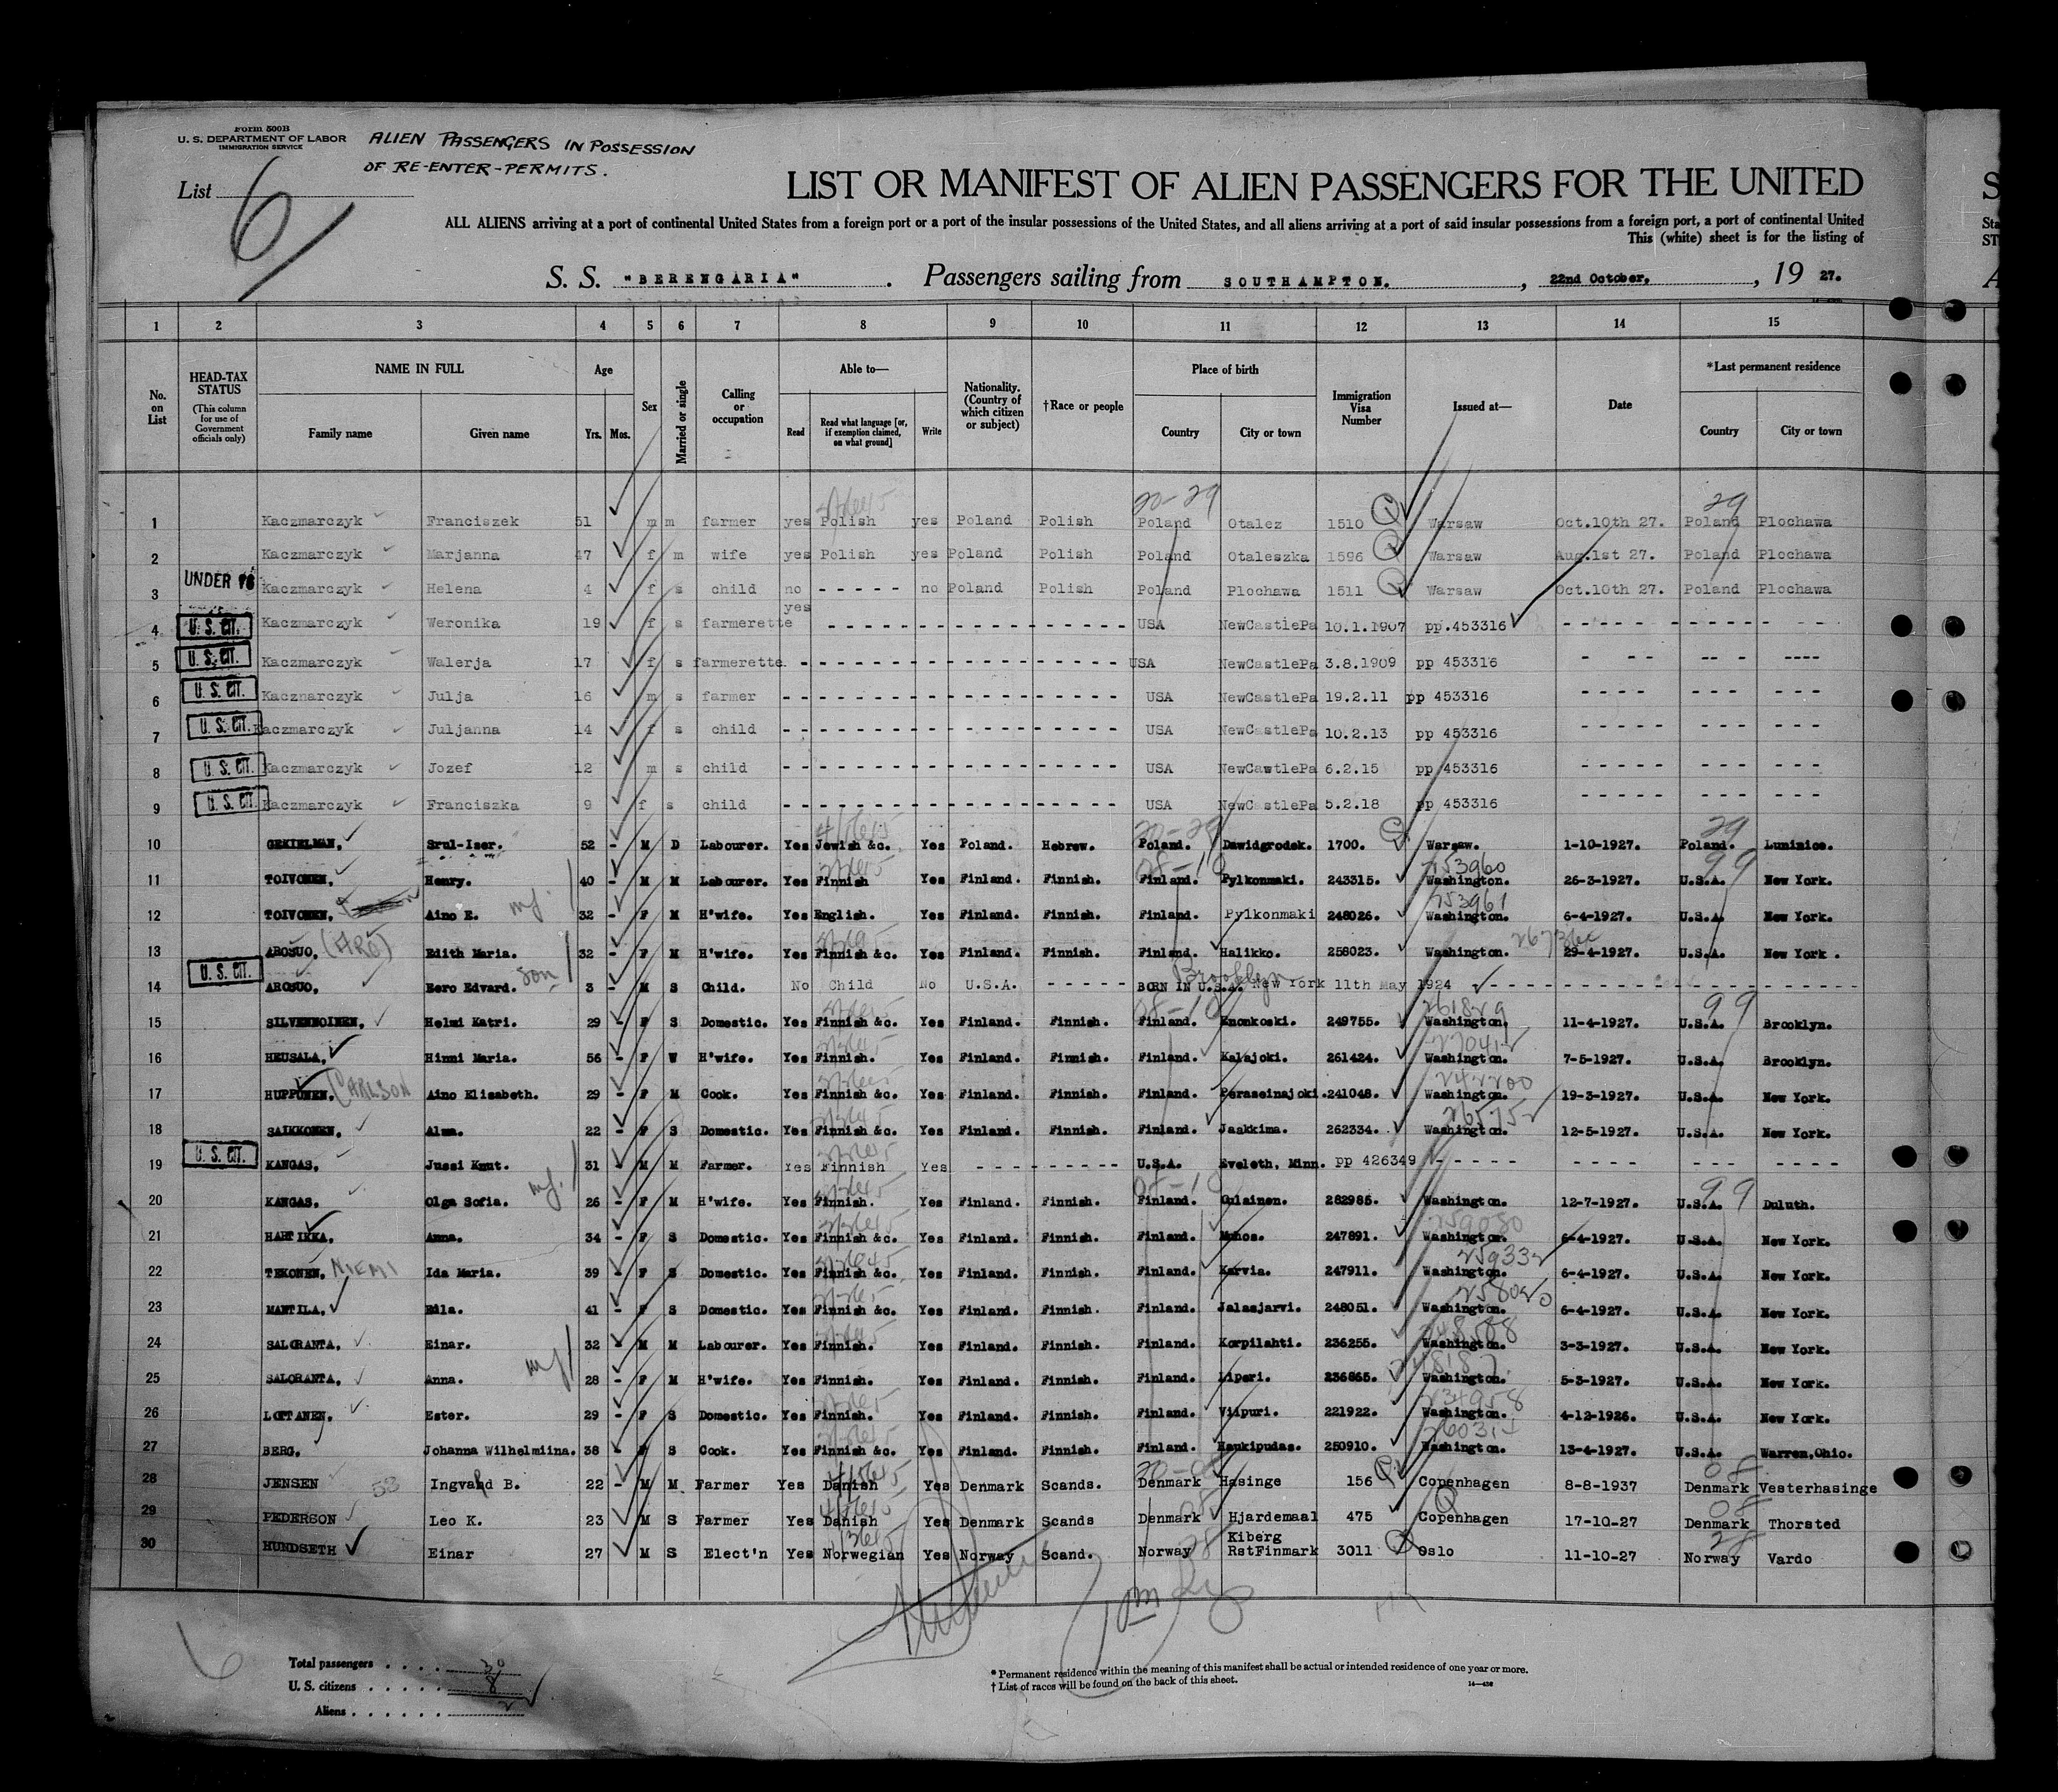 Form 500B
U. S. DEPARTMENT OF LABOR
IMMIGRATION SERVICE
ALIEN PASSENGERS IN POSSESSION
OF RE-ENTER-PERMITS.
List 6
LIST OR MANIFEST OF ALIEN PASSENGERS FOR THE UNITED
ALL ALIENS arriving at a port of continental United States from a foreign port or a port of the insular possessions of the United States, and all aliens arriving at a port of said insular possessions from a foreign port, a port of continental United
This (white) sheet is for the listing of
S. S. "BERENGARIA" . Passengers sailing from SOUTHAMPTON. , 22nd October, , 19 27.
1 2 3 4 5 6 7 8 9 10 11 12 13 14 15
No. on List
HEAD-TAX STATUS
(This column for use of Government officials only)
NAME IN FULL
Family name Given name
Age
Yrs. Mos.
Sex
Married or single
Calling or occupation
Able to—
Read
Read what language [or, if exemption claimed, on what ground]
Write
Nationality. (Country of which citizen or subject)
†Race or people
Place of birth
Country City or town
Immigration Visa Number
Issued at—
Date
*Last permanent residence
Country City or town
20-29 29
1 Kaczmarczyk Franciszek 51 m m farmer yes Polish yes Poland Polish Poland Otalez 1510 Warsaw Oct.10th 27. Poland Plochawa
2 Kaczmarczyk Marjanna 47 f m wife yes Polish yes Poland Polish Poland Otaleszka 1596 Warsaw Aug.1st 27. Poland Plochawa
3 UNDER 16 Kaczmarczyk Helena 4 f s child no - - - - - no Poland Polish Poland Plochawa 1511 Warsaw Oct.10th 27. Poland Plochawa
yes
4 U. S. CIT. Kaczmarczyk Weronika 19 f s farmerette USA NewCastlePa 10.1.1907 pp.453316
5 U. S. CIT. Kaczmarczyk Walerja 17 f s farmerette. USA NewCastlePa 3.8.1909 pp 453316
6 U. S. CIT. Kacznarczyk Julja 16 m s farmer USA NewCastlePa 19.2.11 pp 453316
7 U. S. CIT. Kaczmarczyk Juljanna 14 f s child USA NewCastlePa 10.2.13 pp 453316
8 U. S. CIT. Kaczmarczyk Jozef 12 m s child USA NewCawtlePa 6.2.15 pp 453316
9 U. S. CIT. Kaczmarczyk Franciszka 9 f s child USA NewCastlePa 5.2.18 pp 453316
20-29 29
10 GEKIELMAN, Srul-Iser. 52 - M D Labourer. Yes Jewish &c. Yes Poland. Hebrew. Poland. Dawidgrodek. 1700. Warsaw. 1-10-1927. Poland. Luminice.
253960 99
11 TOIVONEN, Henry. 40 - M M Labourer. Yes Finnish Yes Finland. Finnish. Finland. Pylkonmaki. 243315. Washington. 26-3-1927. U.S.A. New York.
253961
12 TOIVONEN, Aino E. 32 - F M H'wife. Yes English. Yes Finland. Finnish. Finland. Pylkonmaki 248026. Washington. 6-4-1927. U.S.A. New York.
13 AROSUO, (ARO) Edith Maria. 32 - F M H'wife. Yes Finnish &c. Yes Finland. Finnish. Finland. Halikko. 258023. Washington. 29-4-1927. U.S.A. New York .
son
Brooklyn
14 U. S. CIT. AROSUO, Eero Edvard. 3 - M S Child. No Child No U.S.A. - - - - - BORN IN U.S.A. New York 11th May 1924
261829 99
15 SILVENNOINEN, Helmi Katri. 29 - F S Domestic. Yes Finnish &c. Yes Finland. Finnish. Finland. Enonkoski. 249755. Washington. 11-4-1927. U.S.A. Brooklyn.
16 HEUSALA, Hinni Maria. 56 - F W H'wife. Yes Finnish. Yes Finland. Finnish. Finland. Kalajoki. 261424. Washington. 7-5-1927. U.S.A. Brooklyn.
242200
17 HUPPONEN, (CARLSON Aino Elisabeth. 29 - F M Cook. Yes Finnish &c. Yes Finland. Finnish. Finland. Peraseinajoki. 241048. Washington. 19-3-1927. U.S.A. New York.
18 SAIKKONEN, Alma. 22 - F S Domestic. Yes Finnish &c. Yes Finland. Finnish. Finland. Jaakkima. 262334. Washington. 12-5-1927. U.S.A. New York.
19 U. S. CIT. KANGAS, Jussi Knut. 31 - M M Farmer. Yes Finnish Yes - - - - - - - - - U.S.A. Eveleth, Minn. pp 426349
99
20 KANGAS, Olga Sofia. 26 - F M H'wife. Yes Finnish. Yes Finland. Finnish. Finland. Oulainen. 282985. Washington. 12-7-1927. U.S.A. Duluth.
21 HARTIKKA, Anna. 34 - F S Domestic. Yes Finnish &c. Yes Finland. Finnish. Finland. Muhos. 247891. Washington. 6-4-1927. U.S.A. New York.
22 TEKONEN, NIEMI Ida Maria. 39 - F S Domestic. Yes Finnish &c. Yes Finland. Finnish. Finland. Karvia. 247911. Washington. 6-4-1927. U.S.A. New York.
23 MANTILA, Eila. 41 - F S Domestic. Yes Finnish &c. Yes Finland. Finnish. Finland. Jalasjarvi. 248051. Washington. 6-4-1927. U.S.A. New York.
24 SALORANTA, Einar. 32 - M M Labourer. Yes Finnish. Yes Finland. Finnish. Finland. Korpilahti. 236255. Washington. 3-3-1927. U.S.A. New York.
25 SALORANTA, Anna. 28 - F M H'wife. Yes Finnish. Yes Finland. Finnish. Finland. Liperi. 236865. Washington. 5-3-1927. U.S.A. New York.
234958
26 LOTTANEN, Ester. 29 - F S Domestic. Yes Finnish. Yes Finland. Finnish. Finland. Viipuri. 221922. Washington. 4-12-1926. U.S.A. New York.
27 BERG, Johanna Wilhelmiina. 38 - F S Cook. Yes Finnish &c. Yes Finland. Finnish. Finland. Haukipudas. 250910. Washington. 13-4-1927. U.S.A. Warren, Ohio.
08
28 JENSEN 53 Ingvard B. 22 - M M Farmer Yes Danish Yes Denmark Scands. Denmark Hasinge 156 Copenhagen 8-8-1937 Denmark Vesterhasinge
08
29 PEDERSON Leo K. 23 M S Farmer Yes Danish Yes Denmark Scands Denmark Hjardemaal 475 Copenhagen 17-10-27 Denmark Thorsted
28
30 HUNDSETH Einar 27 M S Elect'n Yes Norwegian Yes Norway Scand. Norway Kiberg RstFinmark 3011 Oslo 11-10-27 Norway Vardo
Total passengers . . . . 30
U. S. citizens . . . . . 8
Aliens . . . . . .
* Permanent residence within the meaning of this manifest shall be actual or intended residence of one year or more.
† List of races will be found on the back of this sheet.
14—436